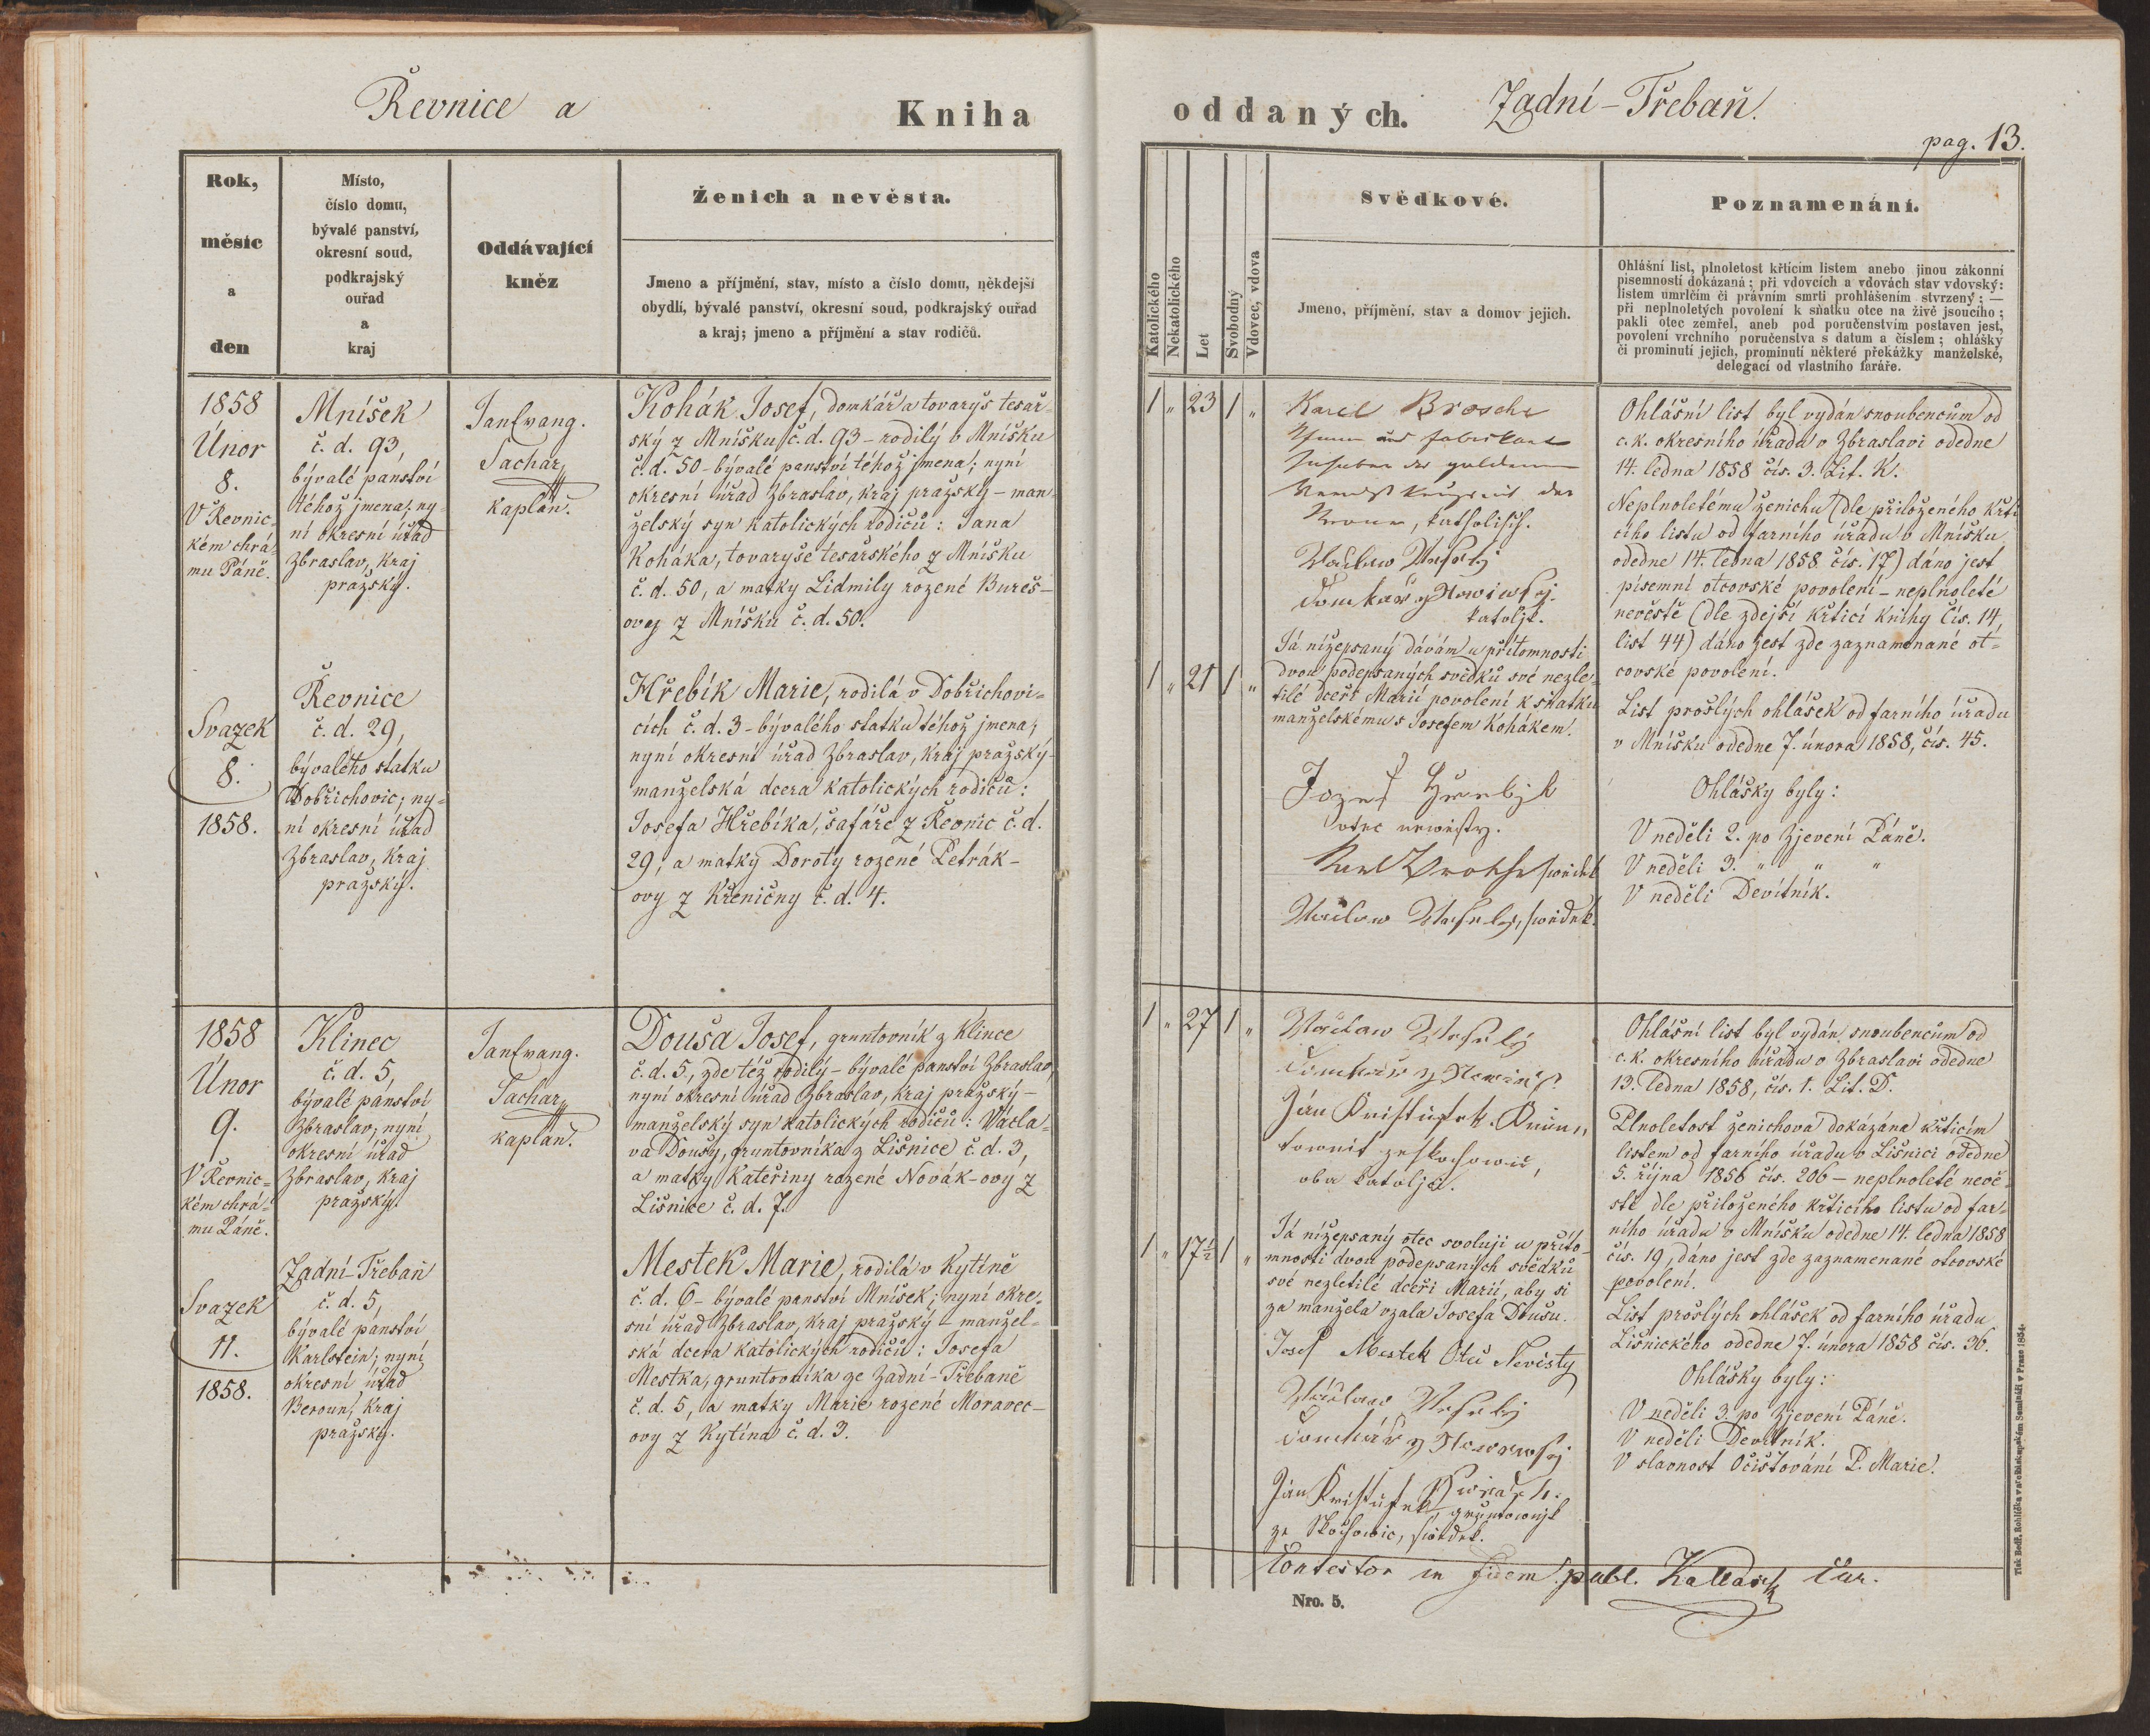 Řevnice a
Kniha
Rok,
měsíc
a
den
Místo,
číslo domu,
bývalé panství,
okresní soud,
podkrajský
ouřad
a
kraj
Oddávající
kněz
Ženich a nevěsta.
Jmeno a příjmění, stav, místo a číslo domu, někdejší
obydlí, bývalé panství, okresní soud, podkrajský ouřad
a kraj; jmeno a příjmění a stav rodičů.
1858
Únor
8.
V Řevnic-
kém chrá-
mu Páně.
Svazek
8.
1858.
Mníšek
č. d. 93,
bývalé panství
téhož jmena; ny-
ní okresní úřad
Zbraslav, kraj
pražský.
Řevnice
č. d. 29,
bývalého statku
Dobřichovic; ny-
ní okresní úřad
Zbraslav, kraj
pražský.
Jan Evang.
Sachar,
kaplan.
Kohák Josef, domkář a tovaryš tesař-
ský z Mníšku č. d. 93 – rodilý v Mníšku
č. d. 50 – bývalé panství téhož jmena; nyní
okresní úřad Zbraslav, kraj pražský – man-
želský syn katolických rodičů: Jana
Koháka, tovaryše tesařského z Mníšku
č. d. 50, a matky Lidmily rozené Bureš-
ovy z Mníšku č. d. 50.
Hřebík Marie, rodilá v Dobřichovi-
cích č. d. 3 – bývalého statku téhož jmena;
nyní okresní úřad Zbraslav, kraj pražský –
manželská dcera katolických rodičů:
Josefa Hřebíka, šafáře z Řevnic č. d.
29, a matky Doroty rozené Petrák-
ovy z Křeničny č. d. 4.
1858
Únor
9.
V Řevnic-
kém chrá-
mu Páně.
Svazek
11.
1858.
Klinec
č. d. 5,
bývalé panství
Zbraslav; nyní
okresní úřad
Zbraslav, kraj
pražský.
Zadní-Třebaň
č. d. 5,
bývalé panství
Karlstein; nyní
okresní úřad
Beroun, kraj
pražský.
Jan Evang.
Sachar,
kaplan.
Douša Josef, gruntovník z Klince
č. d. 5, zde též rodilý – bývalé panství Zbraslav,
nyní okresní úřad Zbraslav, kraj pražský –
manželský syn katolických rodičů: Václa-
va Doušy, gruntovníka z Líšnice č. d. 3,
a matky Kateřiny rozené Novák-ový z
Líšnice č. d. 7.
Mestek Marie, rodilá v Kytíně
č. d. 6 – bývalé panství Mníšek; nyní okre-
sní úřad Zbraslav, kraj pražský – manžel-
ská dcera katolických rodičů: Josefa
Mestka, gruntovníka ze Zadní-Třebaně
č. d. 5, a matky Marie rozené Moravec-
ovy z Kytína č. d. 3.
oddaných.
Zadní-Třebaň.
pag. 13.
Katolického
Nekatolického
Let
Svobodný
Vdovec, vdova
Svědkové.
Jmeno, příjmění, stav a domov jejich.
Poznamenání.
Ohlášní list, plnoletost křticím listem anebo jinou zákonní
písemností dokázaná; při vdovcích a vdovách stav vdovský:
listem úmrlčím či právním smrti prohlášením stvrzený; —
při neplnoletých povolení k sňatku otce na živě jsoucího;
pakli otec zemřel, aneb pod poručenstvím postaven jest,
povolení vrchního poručenstva s datum a číslem; ohlášky
či prominutí jejich, prominutí některé překážky manželské,
delegací od vlastního faráře.
1 „ 23 1 „
Karel Brosche
goldenen
Krone, katholisch.
Wáclaw Weselý
Domkář z
katolík.
Já nížepsaný dávám u přítomnosti
dvou podepsaných svědků své nezle-
tilé dceři Marii povolení k sňatku
manželskému s Josefem Kohákem.
1 „ 21 1 „
Jozef Hřebjk
otec newěsty.
Karl Brosche swědek
Wáclaw Weselý, swědek.
Ohlášní list byl vydán snoubencům od
c. k. okresního úřadu v Zbraslavi odedne
14. ledna 1858 čís. 3. Lit. K.
Neplnoletému ženichu (dle přiloženého křti-
cího listu od farního úřadu v Mníšku
odedne 14. ledna 1858 čís. 17) dáno jest
písemní otcovské povolení – neplnoleté
nevěstě (dle zdejší křticí knihy čís. 14,
list 44) dáno jest zde zaznamenané ot-
covské povolení.
List prošlých ohlášek od farního úřadu
v Mníšku odedne 7. února 1858, čís. 45.
Ohlášky byly:
V neděli 2. po Zjevení Páně.
V neděli 3. „ „ „
V neděli Devítník.
1 „ 27 1 „
Wáclaw Weselý
Domkář z
Ján Krištůfek Grun„
townik ze Skochowic,
oba katoljci.
Já nížepsaný otec svoluji u příto-
mnosti dvou podepsaných svědků
své nezletilé dceři Marii, aby si
za manžela vzala Josefa Doušu.
1 „ 17½ 1 „
Josef Mestek Otec Nevěsty
Wáclaw Weselý
Domkář z
Ján Krištůfek
gruntownjk
ze Skochowic, swědek.
Ohlášní list byl vydán snoubencům od
c. k. okresního úřadu v Zbraslavi odedne
13. ledna 1858, čís. 1. Lit. D.
Plnoletost ženichova dokázána křticím
listem od farního úřadu v Líšnici odedne
5. října 1856 čís. 206 – neplnoleté nevě-
stě, dle přiloženého křticího listu od far-
ního úřadu v Mníšku odedne 14. ledna 1858
čís. 19, dáno jest zde zaznamenané otcovské
povolení.
List prošlých ohlášek od farního úřadu
Líšnického odedne 7. února 1858 čís. 36.
Ohlášky byly:
V neděli 3. po Zjevení Páně.
V neděli Devítník.
V slavnost Očišťování P. Marie.
Contestor in fidem publ. Kallásek Cur.
Nro. 5.
Tisk Bedř. Rohlíčka v arcibiskupském Semináři v Praze 1854.